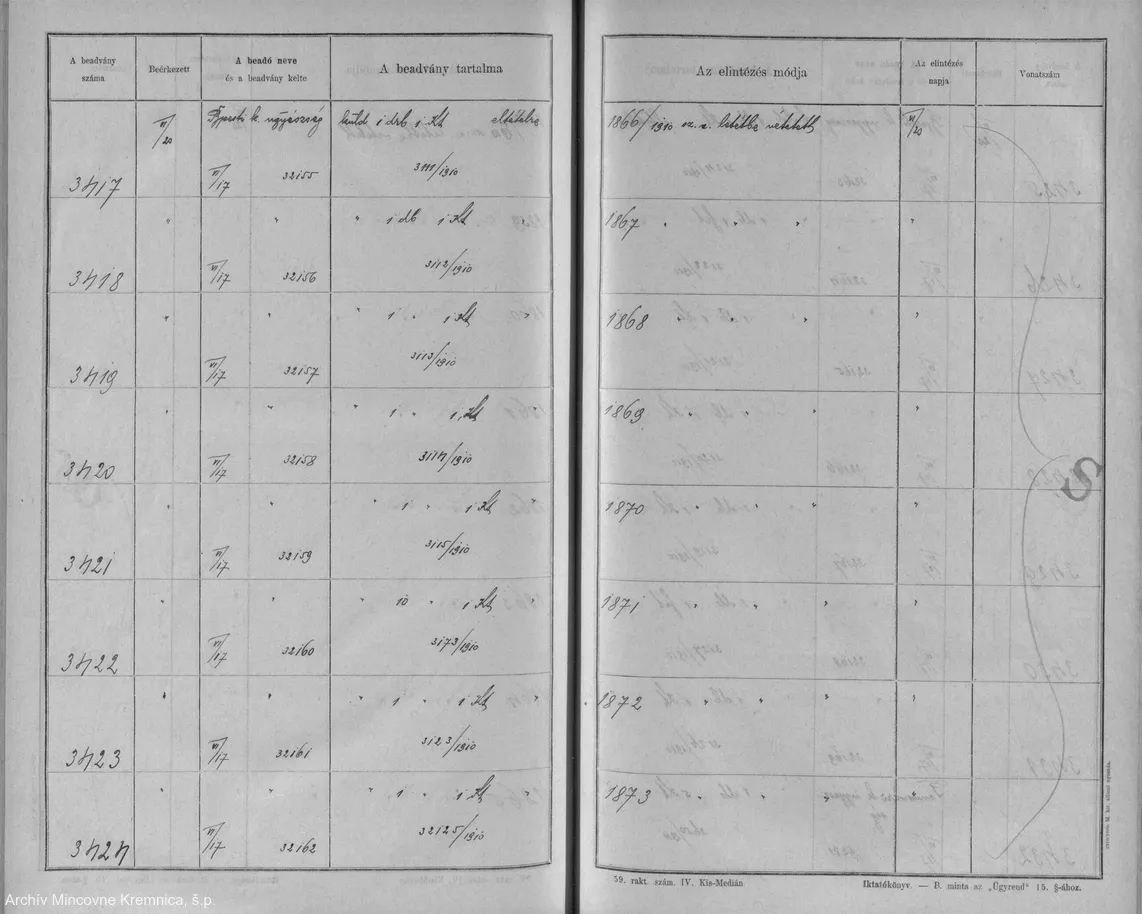 A beadvány száma
Beérkezett
A beadó neve és a beadvány kelte
A beadvány tartalma
Az elintézés módja
Az elintézés napja
Vonatszám
VI/20 k. ügyészség küld 1 drb 1 Kt 1866/1910 sz. a. letétbe vétetett VI/20
3417 VI/17 32155 3111/1910
" " " 1 db 1 Kt " 1867 " " " "
3418 VI/17 32156 3112/1910
" " " 1 " 1 Kt " 1868 " " " "
3419 VI/17 32157 3113/1910
" " " 1 " 1 Kt 1869 " " " "
3420 VI/17 32158 3114/1910
" " " 1 " 1 Kt " 1870 " " " "
3421 VI/17 32159 3115/1910
" " " 10 " 1 Kt " 1871 " " " "
3422 VI/17 32160 3173/1910
" " " 1 " 1 Kt " 1872 " " " "
3423 VI/17 32161 3123/1910
" " " 1 " 1 Kt " 1873 " " " "
3424 VI/17 32162 32125/1910
59. rakt. szám. IV. Kis-Medián
Iktatókönyv. — B. minta az „Ügyrend" 15. §-ához.
Archív Mincovne Kremnica, š.p.